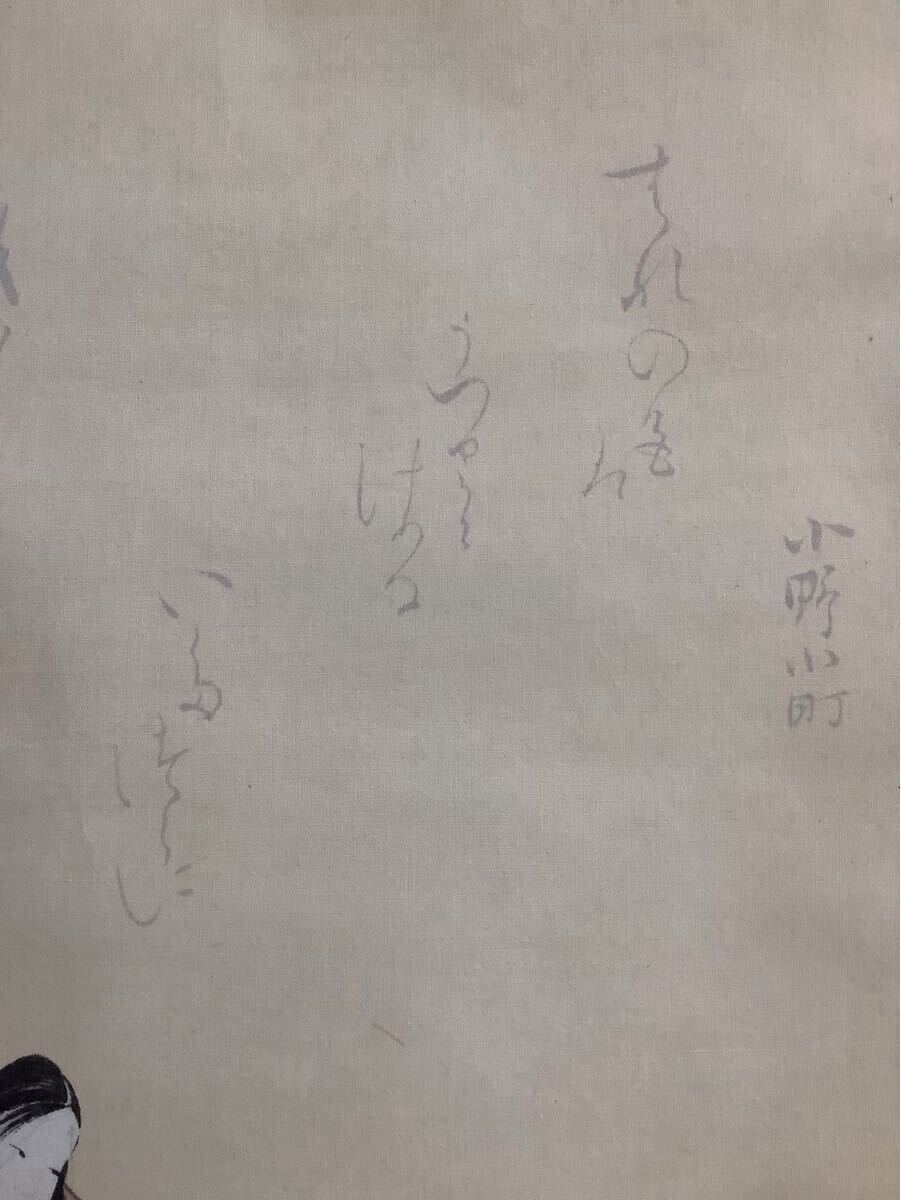 小野小町
はなの色
は
うつりに
けりな
いたづら
に